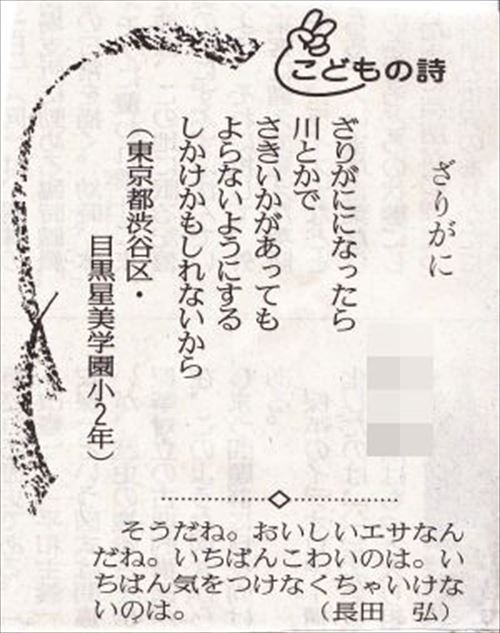 こどもの詩
ざりがに
ざりがにになったら
川とかで
さきいかがあっても
よらないようにする
しかけかもしれないから
（東京都渋谷区・
目黒星美学園小2年）
そうだね。おいしいエサなん
だね。いちばんこわいのは。い
ちばん気をつけなくちゃいけな
いのは。　　　　（長田　弘）